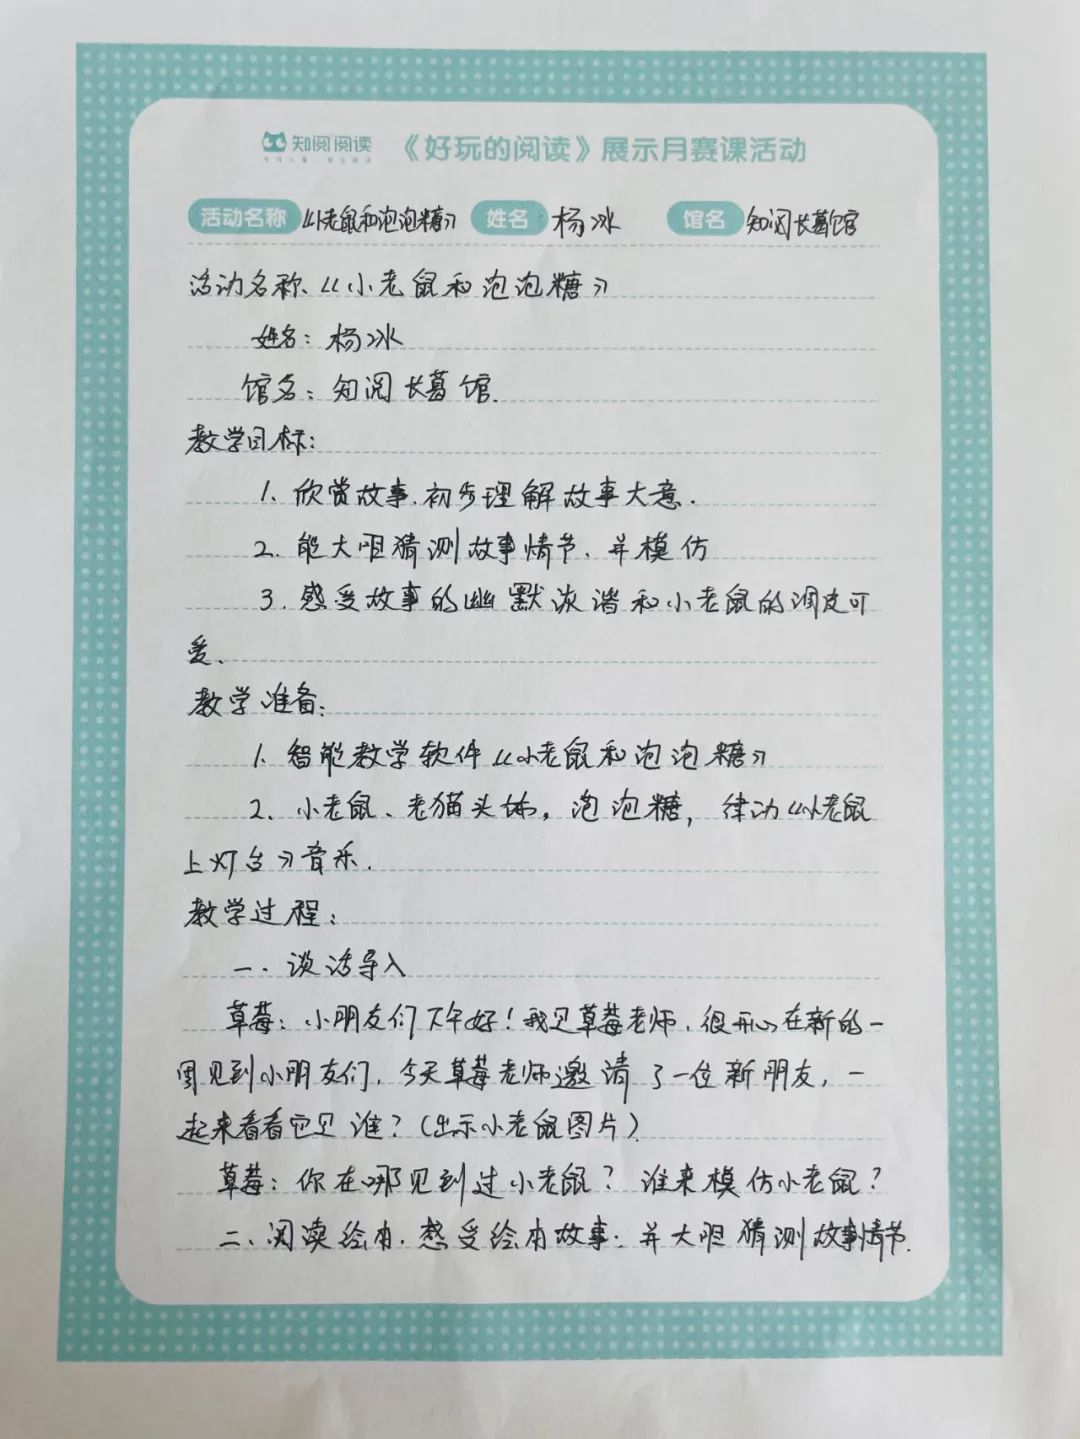 知阅阅读 《好玩的阅读》展示月赛课活动
活动名称 《小老鼠和泡泡糖》 姓名 杨冰 馆名 知阅长葛馆
活动名称、《小老鼠和泡泡糖》
姓名：杨冰
馆名：知阅长葛馆.
教学目标：
1. 欣赏故事.初步理解故事大意.
2. 能大胆猜测故事情节、并模仿
3. 感受故事的幽默诙谐和小老鼠的调皮可
爱.
教学准备：
1. 智能教学软件《小老鼠和泡泡糖》
2、小老鼠、老猫头饰，泡泡糖，律动《小老鼠
上灯台》音乐.
教学过程：
一、谈话导入
草莓：小朋友们下午好！我是草莓老师.很开心在新的一
周见到小朋友们，今天草莓老师邀请了一位新朋友，一
起来看看它是谁？（出示小老鼠图片）
草莓：你在哪见到过小老鼠？谁来模仿小老鼠？
二、阅读绘本.感受绘本故事：并大胆猜测故事情节.